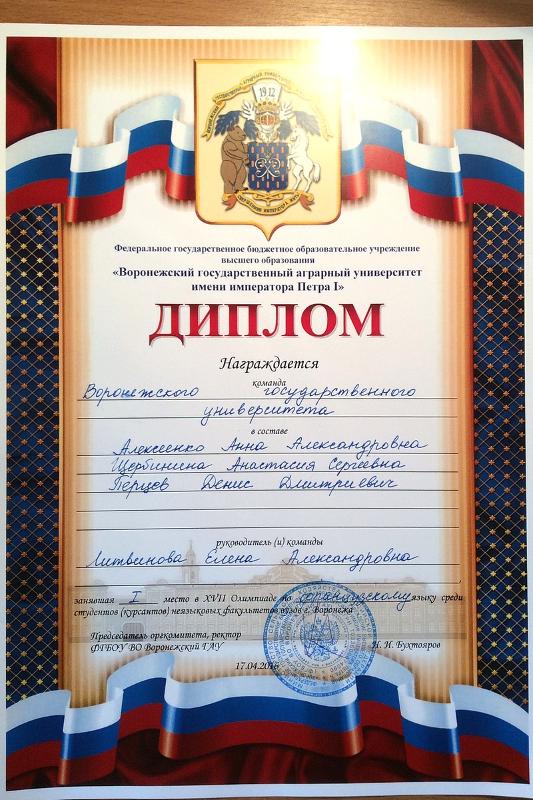 1912
Федеральное государственное бюджетное образовательное учреждение
высшего образования
«Воронежский государственный аграрный университет
имени императора Петра I»
ДИПЛОМ
Награждается
команда
Воронежского государственного
университета
в составе
Алексеенко Анна Александровна
Щербинина Анастасия Сергеевна
Перцев Денис Дмитриевич
руководитель (и) команды
Литвинова Елена Александровна
занявшая I место в XVII Олимпиаде по французскому языку среди
студентов (курсантов) неязыковых факультетов вузов г. Воронежа
Председатель оргкомитета, ректор
ФГБОУ ВО Воронежский ГАУ
Н. И. Бухтояров
17.04.2016